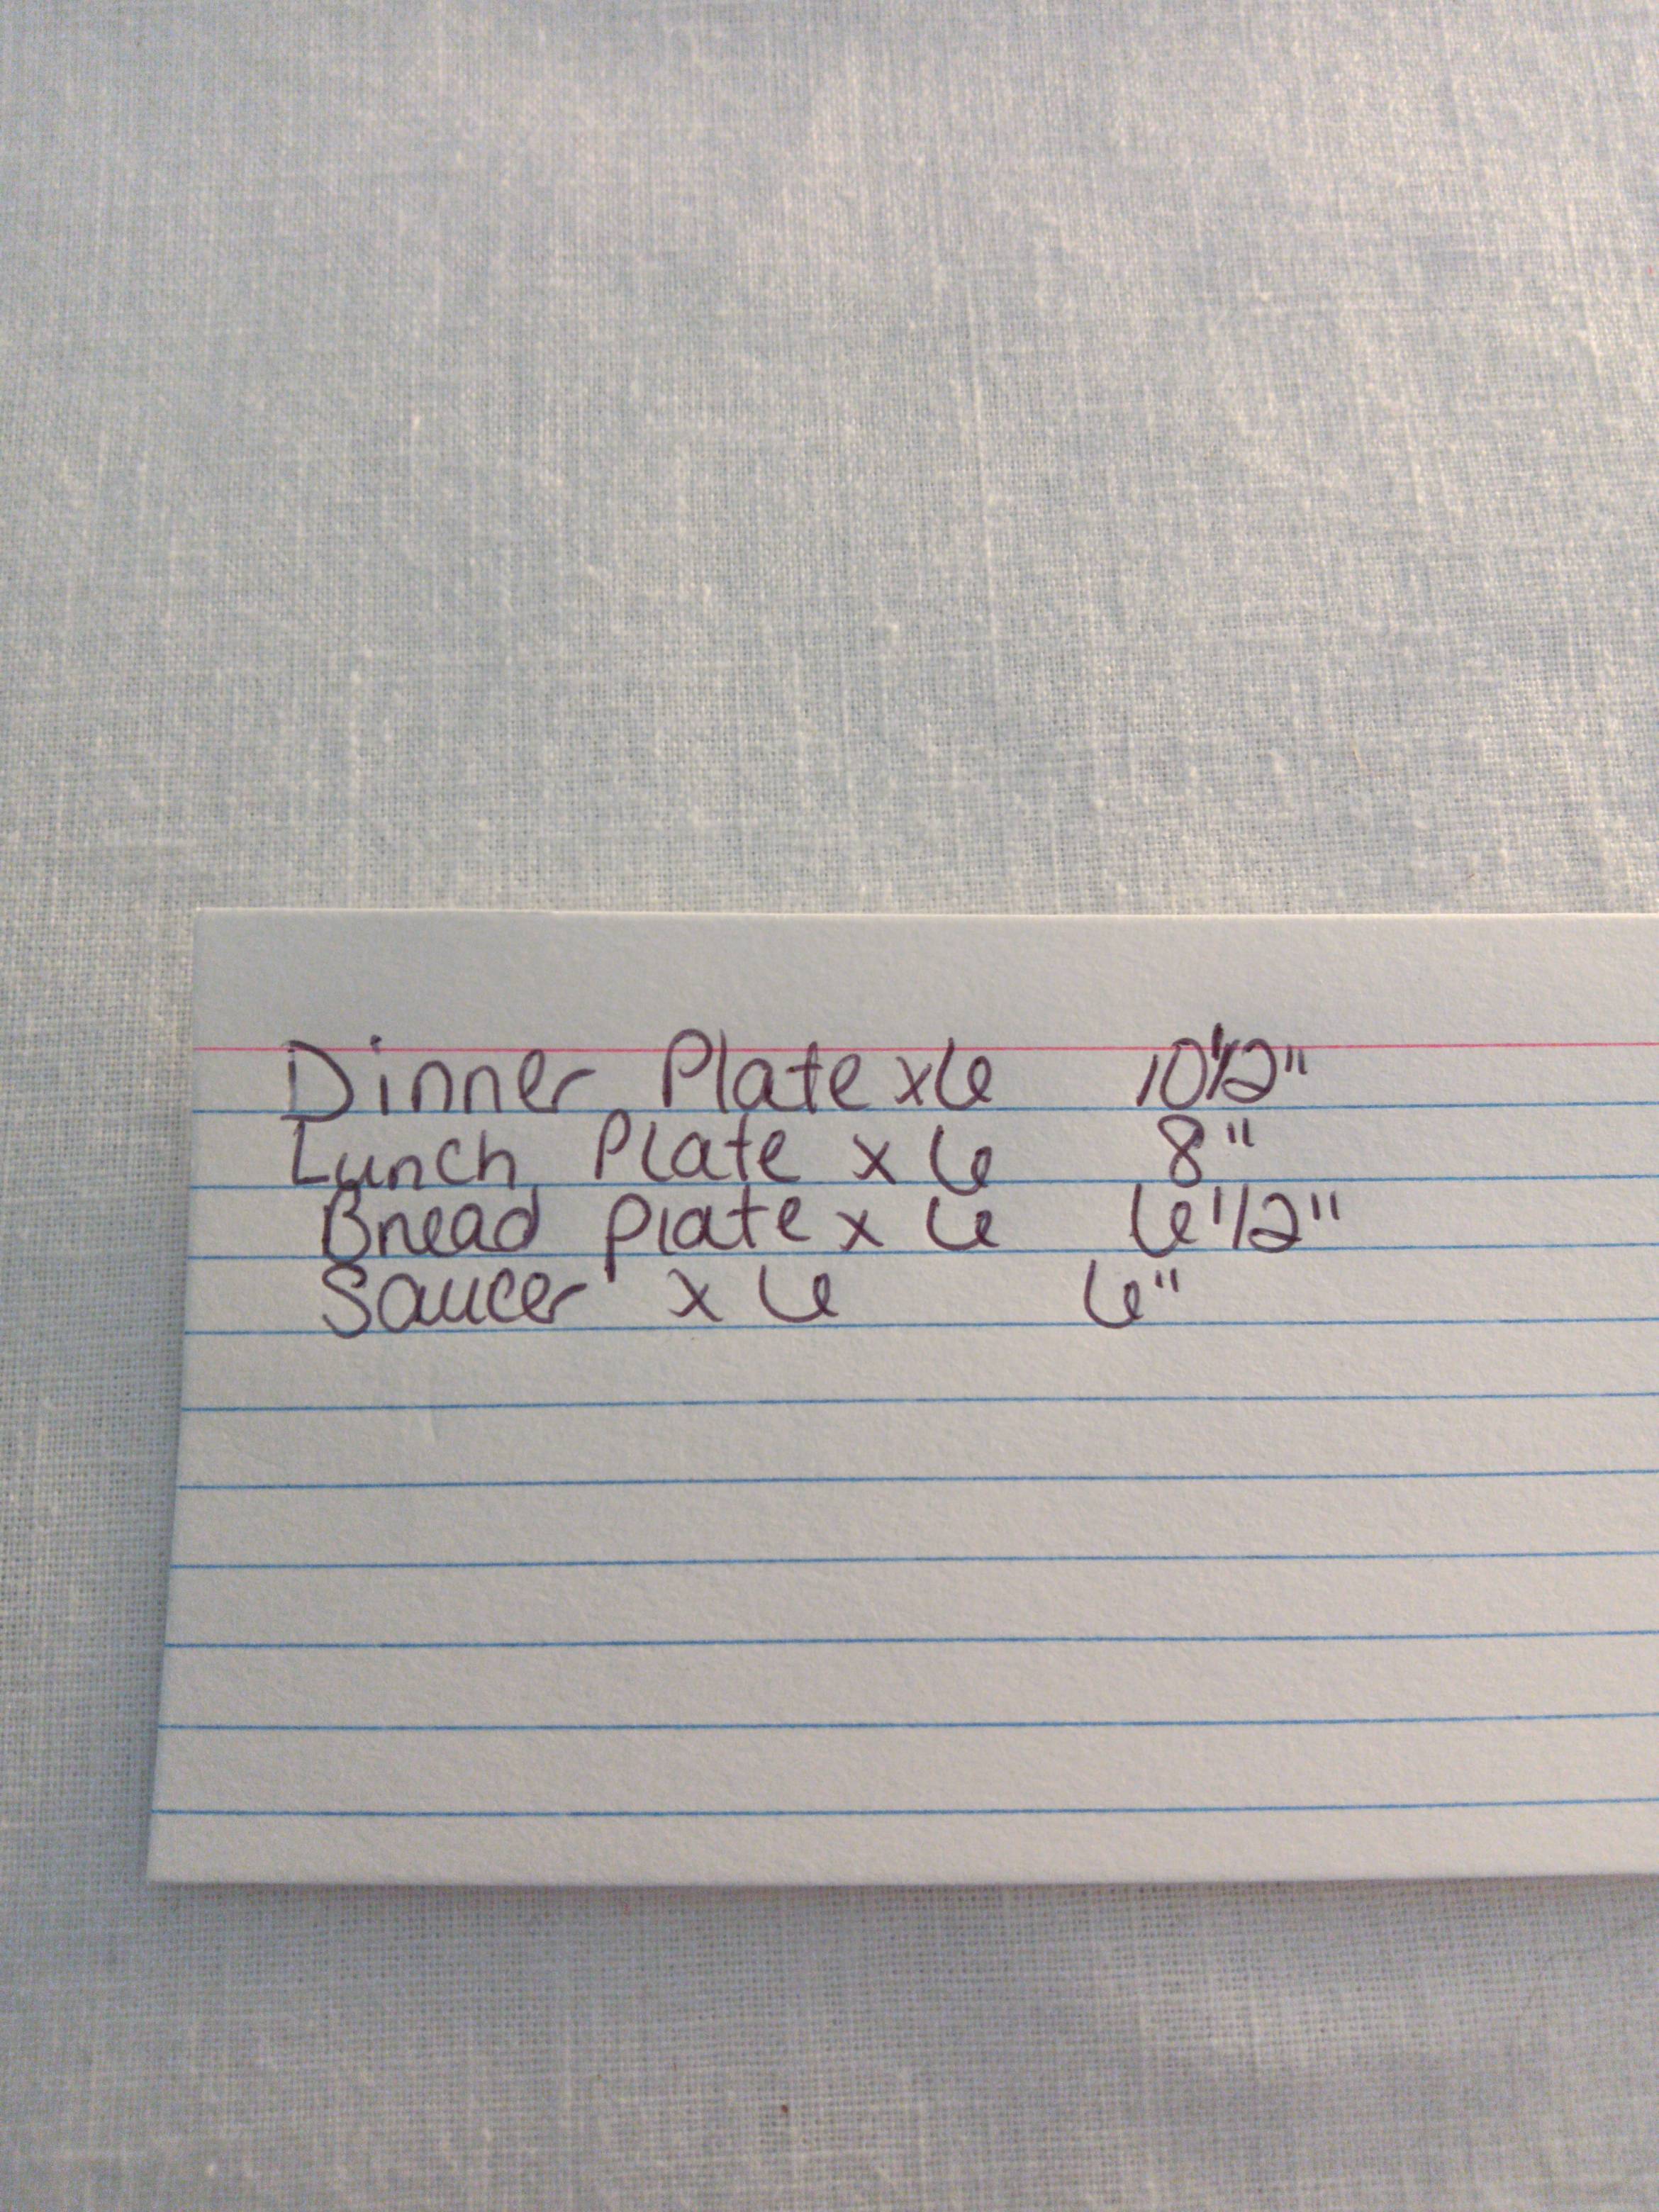 Dinner Plate x6 10 1/2"
Lunch Plate x 6 8"
Bread plate x 6 6 1/2"
Saucer x 6 6"